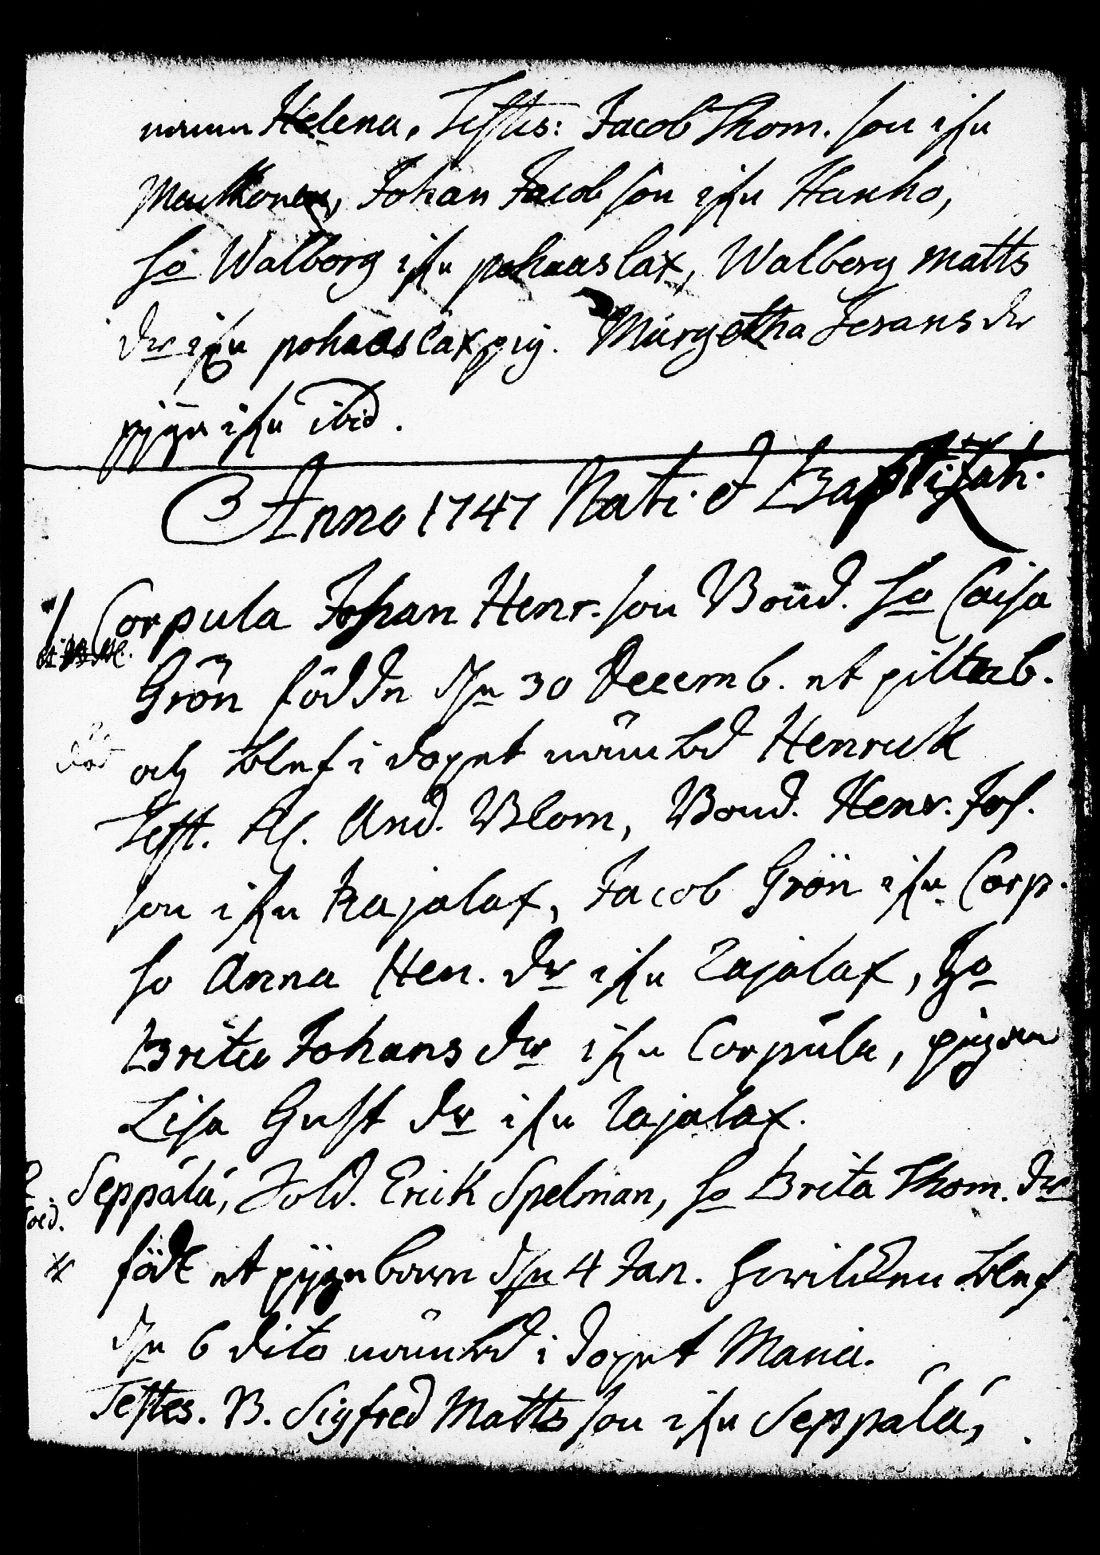 namn Helena. Testes: Jacob Thom. son ifrån
Mutkonen, Johan Jacob son ifrån Hanho,
ho Walborg ifrån pohaaslax, Walborg Matts
dr ifrån pohaaslax pig. Margetha Jerans dr
pigan ifrån ibid.
Anno 1747 Nati & Baptisati.
1 Corpula Johan Henr. son Bond. ho Caisa
Grön född den 30 Decemb. et pilteb.
död och blef i dopet nämbd Henrick
Test. And. Blom, Bond. Henr. Joh.
son ifrån Rajalax, Jacob Grön ifrån Corp.
ho Anna Hen. dr ifrån Rajalax, ho
Brita Johans dr ifrån Corpula, pigan
Lisa Gust dr ifrån Rajalax.
2 Seppälä, Sold. Erick Spelman, ho Brita Thom. dr
födt et pigebarn den 4 Jan. hwilcken blef
den 6 dito nämbd i dopet Maria.
Testes. B. Sigfred Matts son ifrån Seppälä,